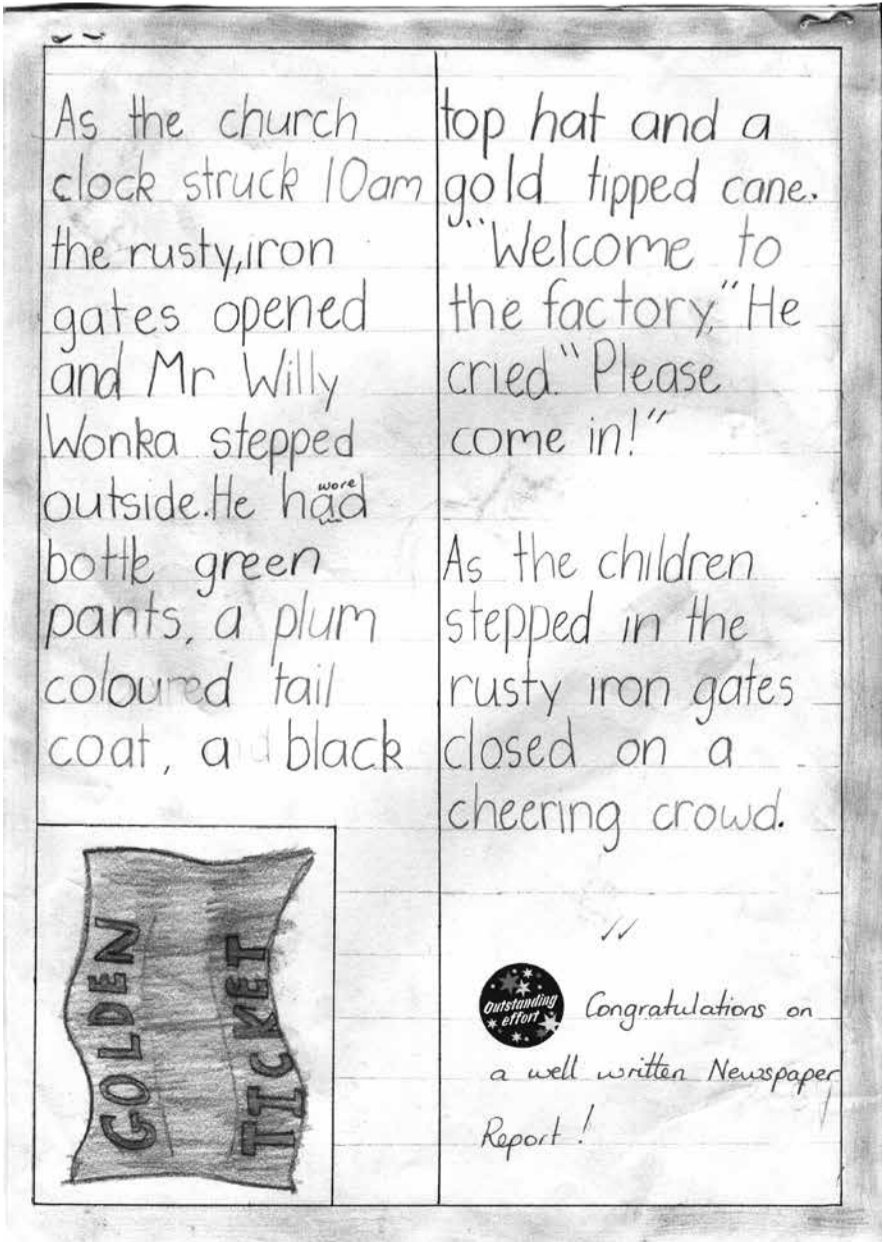 As the church
clock struck 10am
the rusty,iron
gates opened
and Mr Willy
Wonka stepped
outside.He had
wore
bottle green
pants, a plum
coloured tail
coat, a d black
GOLDEN
TICKET
top hat and a
gold tipped cane.
"Welcome to
the factory," He
cried. "Please
come in!"
As the children
stepped in the
rusty iron gates
closed on a
cheering crowd.
Outstanding
effort
Congratulations on
a well written Newspaper
Report!